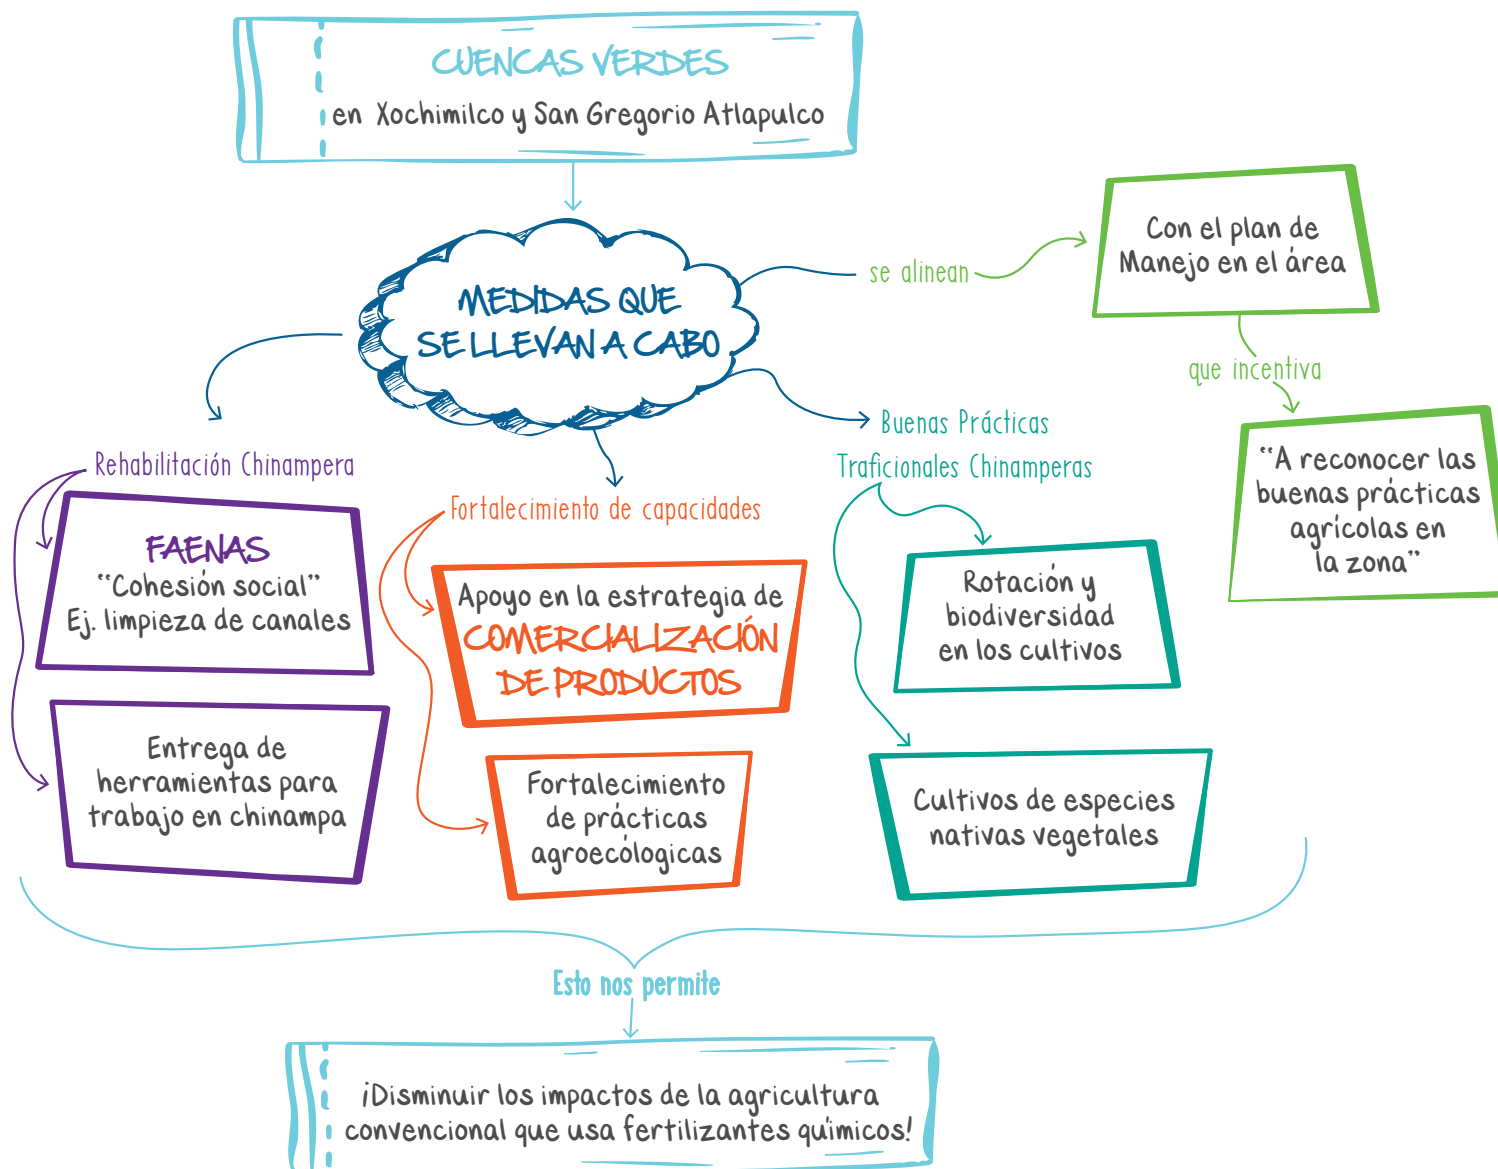 CUENCAS VERDES
en Xochimilco y San Gregorio Atlapulco
MEDIDAS QUE
SE LLEVAN A CABO
se alinean
Con el plan de
Manejo en el área
que incentiva
“A reconocer las
buenas prácticas
agrícolas en
la zona”
Rehabilitación Chinampera
FAENAS
“Cohesión social”
Ej. limpieza de canales
Entrega de
herramientas para
trabajo en chinampa
Fortalecimiento de capacidades
Apoyo en la estrategia de
COMERCIALIZACIÓN
DE PRODUCTOS
Fortalecimiento
de prácticas
agroecólogicas
Buenas Prácticas
Traficionales Chinamperas
Rotación y
biodiversidad
en los cultivos
Cultivos de especies
nativas vegetales
Esto nos permite
¡Disminuir los impactos de la agricultura
convencional que usa fertilizantes químicos!